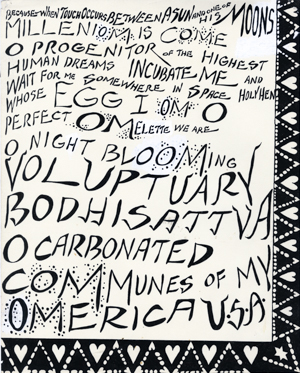 BECAUSE WHEN TOUCH OCCURS BETWEEN A SUN AND ONE OF HIS MOONS
MILLENIOM IS COME
O PROGENITOR OF THE HIGHEST
HUMAN DREAMS INCUBATE ME AND
WAIT FOR ME SOMEWHERE IN SPACE HOLY HEN
WHOSE EGG I OM O
PERFECT OMELETTE WE ARE
O NIGHT BLOOMING
VOLUPTUARY
BODHISATTVA
O CARBONATED
COMMUNES OF MY
OMERICA U.S.A